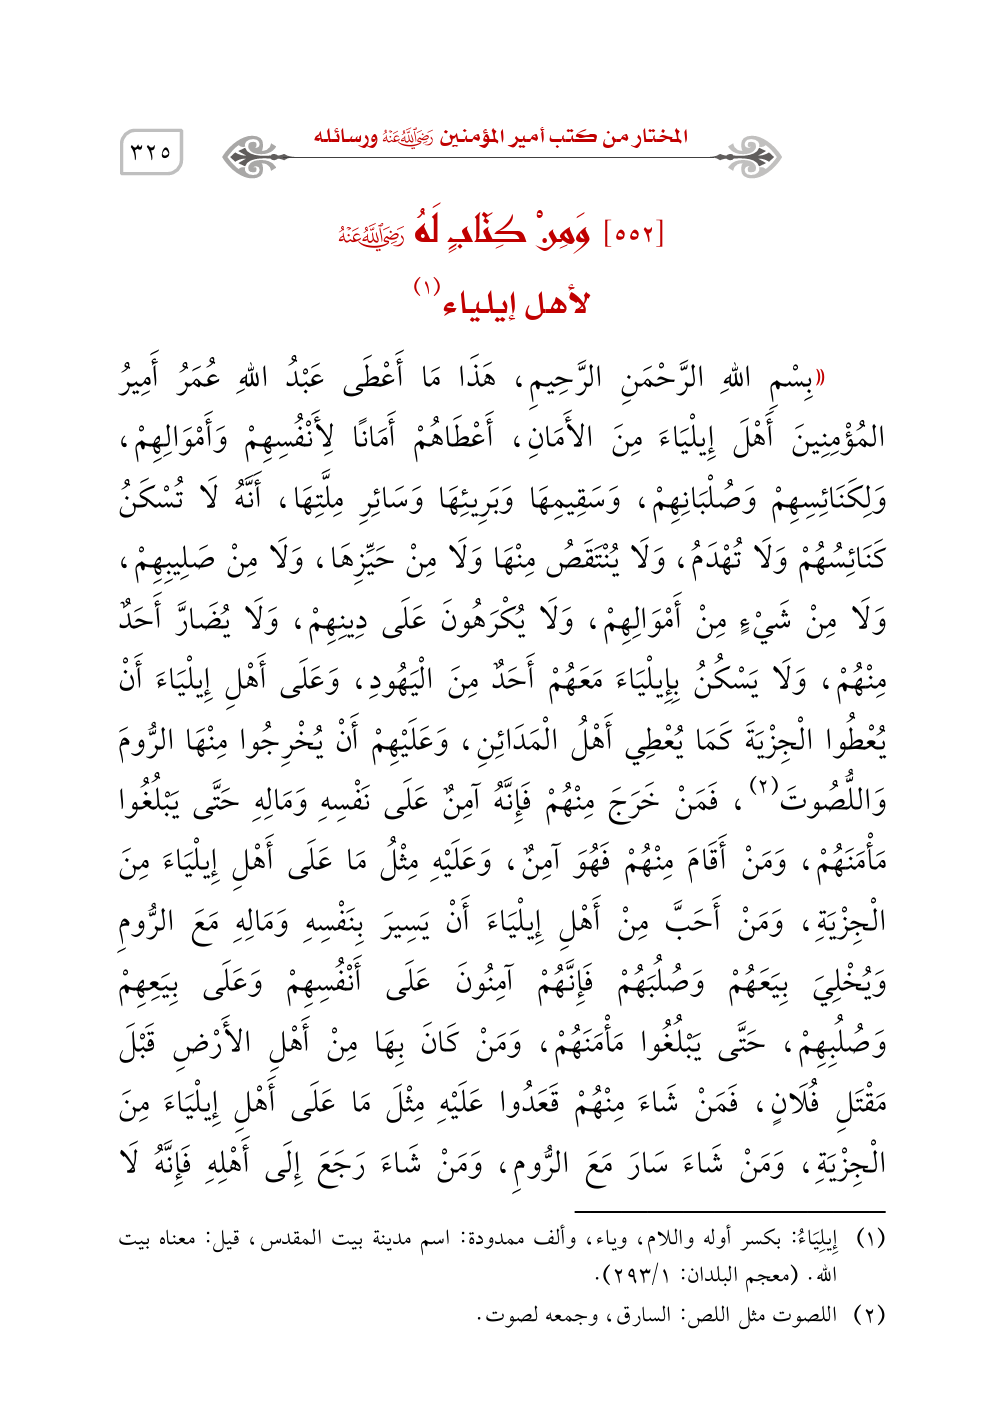 المختار من كتب أمير المؤمنين رَضِيَ اللَّهُ عَنْهُ ورسائله
٣٢٥
[٥٥٢] وَمِنْ كِتَابٍ لَهُ رَضِيَ اللَّهُ عَنْهُ
لأهل إيلياء(١)
«بِسْمِ اللهِ الرَّحْمَنِ الرَّحِيمِ، هَذَا مَا أَعْطَى عَبْدُ اللهِ عُمَرُ أَمِيرُ
المُؤْمِنِينَ أَهْلَ إِيلْيَاءَ مِنَ الأَمَانِ، أَعْطَاهُمْ أَمَانًا لِأَنْفُسِهِمْ وَأَمْوَالِهِمْ،
وَلِكَنَائِسِهِمْ وَصُلْبَانِهِمْ، وَسَقِيمِهَا وَبَرِيئِهَا وَسَائِرِ مِلَّتِهَا، أَنَّهُ لَا تُسْكَنُ
كَنَائِسُهُمْ وَلَا تُهْدَمُ، وَلَا يُنْتَقَصُ مِنْهَا وَلَا مِنْ حَيِّزِهَا، وَلَا مِنْ صَلِيبِهِمْ،
وَلَا مِنْ شَيْءٍ مِنْ أَمْوَالِهِمْ، وَلَا يُكْرَهُونَ عَلَى دِينِهِمْ، وَلَا يُضَارَّ أَحَدٌ
مِنْهُمْ، وَلَا يَسْكُنُ بِإِيلْيَاءَ مَعَهُمْ أَحَدٌ مِنَ الْيَهُودِ، وَعَلَى أَهْلِ إِيلْيَاءَ أَنْ
يُعْطُوا الْجِزْيَةَ كَمَا يُعْطِي أَهْلُ الْمَدَائِنِ، وَعَلَيْهِمْ أَنْ يُخْرِجُوا مِنْهَا الرُّومَ
وَاللُّصُوتَ(٢)، فَمَنْ خَرَجَ مِنْهُمْ فَإِنَّهُ آمِنٌ عَلَى نَفْسِهِ وَمَالِهِ حَتَّى يَبْلُغُوا
مَأْمَنَهُمْ، وَمَنْ أَقَامَ مِنْهُمْ فَهُوَ آمِنٌ، وَعَلَيْهِ مِثْلُ مَا عَلَى أَهْلِ إِيلْيَاءَ مِنَ
الْجِزْيَةِ، وَمَنْ أَحَبَّ مِنْ أَهْلِ إِيلْيَاءَ أَنْ يَسِيرَ بِنَفْسِهِ وَمَالِهِ مَعَ الرُّومِ
وَيُخْلِيَ بِيَعَهُمْ وَصُلُبَهُمْ فَإِنَّهُمْ آمِنُونَ عَلَى أَنْفُسِهِمْ وَعَلَى بِيَعِهِمْ
وَصُلُبِهِمْ، حَتَّى يَبْلُغُوا مَأْمَنَهُمْ، وَمَنْ كَانَ بِهَا مِنْ أَهْلِ الأَرْضِ قَبْلَ
مَقْتَلِ فُلَانٍ، فَمَنْ شَاءَ مِنْهُمْ قَعَدُوا عَلَيْهِ مِثْلَ مَا عَلَى أَهْلِ إِيلْيَاءَ مِنَ
الْجِزْيَةِ، وَمَنْ شَاءَ سَارَ مَعَ الرُّومِ، وَمَنْ شَاءَ رَجَعَ إِلَى أَهْلِهِ فَإِنَّهُ لَا
(١) إِيلِيَاءُ: بكسر أوله واللام، وياء، وألف ممدودة: اسم مدينة بيت المقدس، قيل: معناه بيت
الله. (معجم البلدان: ٢٩٣/١).
(٢) اللصوت مثل اللص: السارق، وجمعه لصوت.